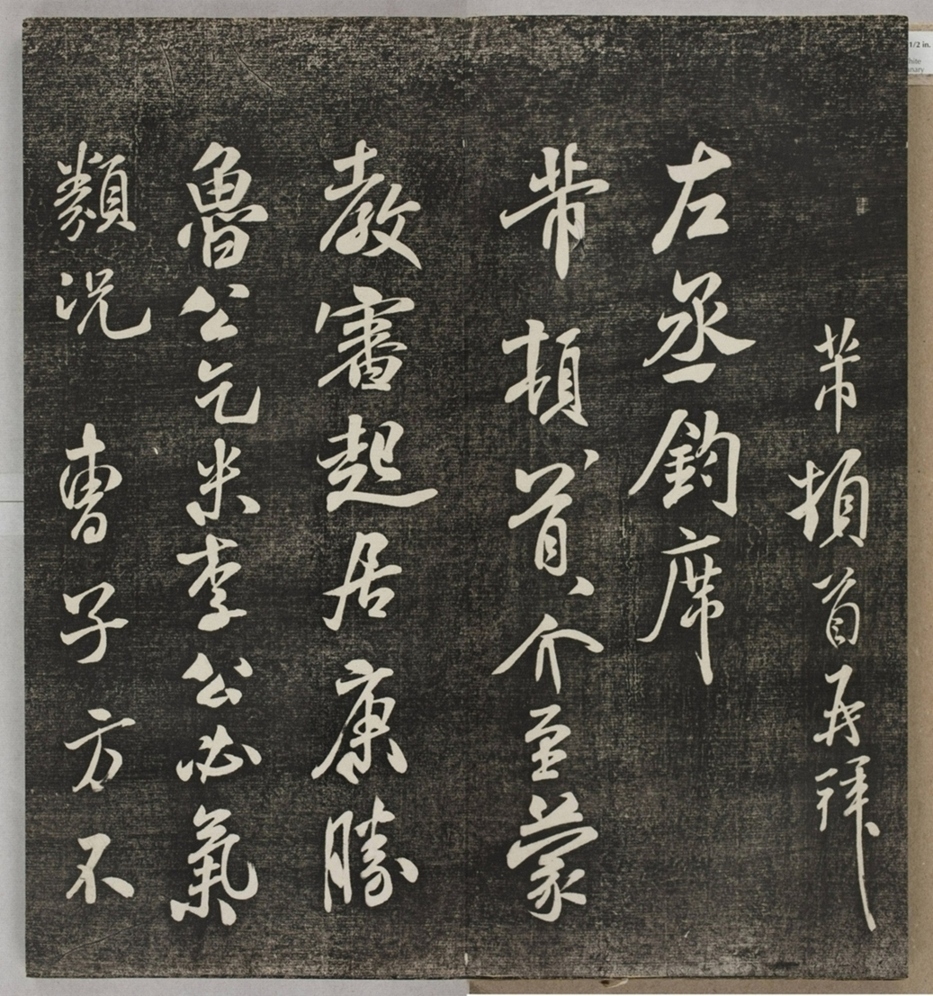 芾頓首再拜
左丞鈞席
芾頓首介至蒙
教審起居康勝
魯公乞米李公必氣
類況曹子方不
1/2 in.